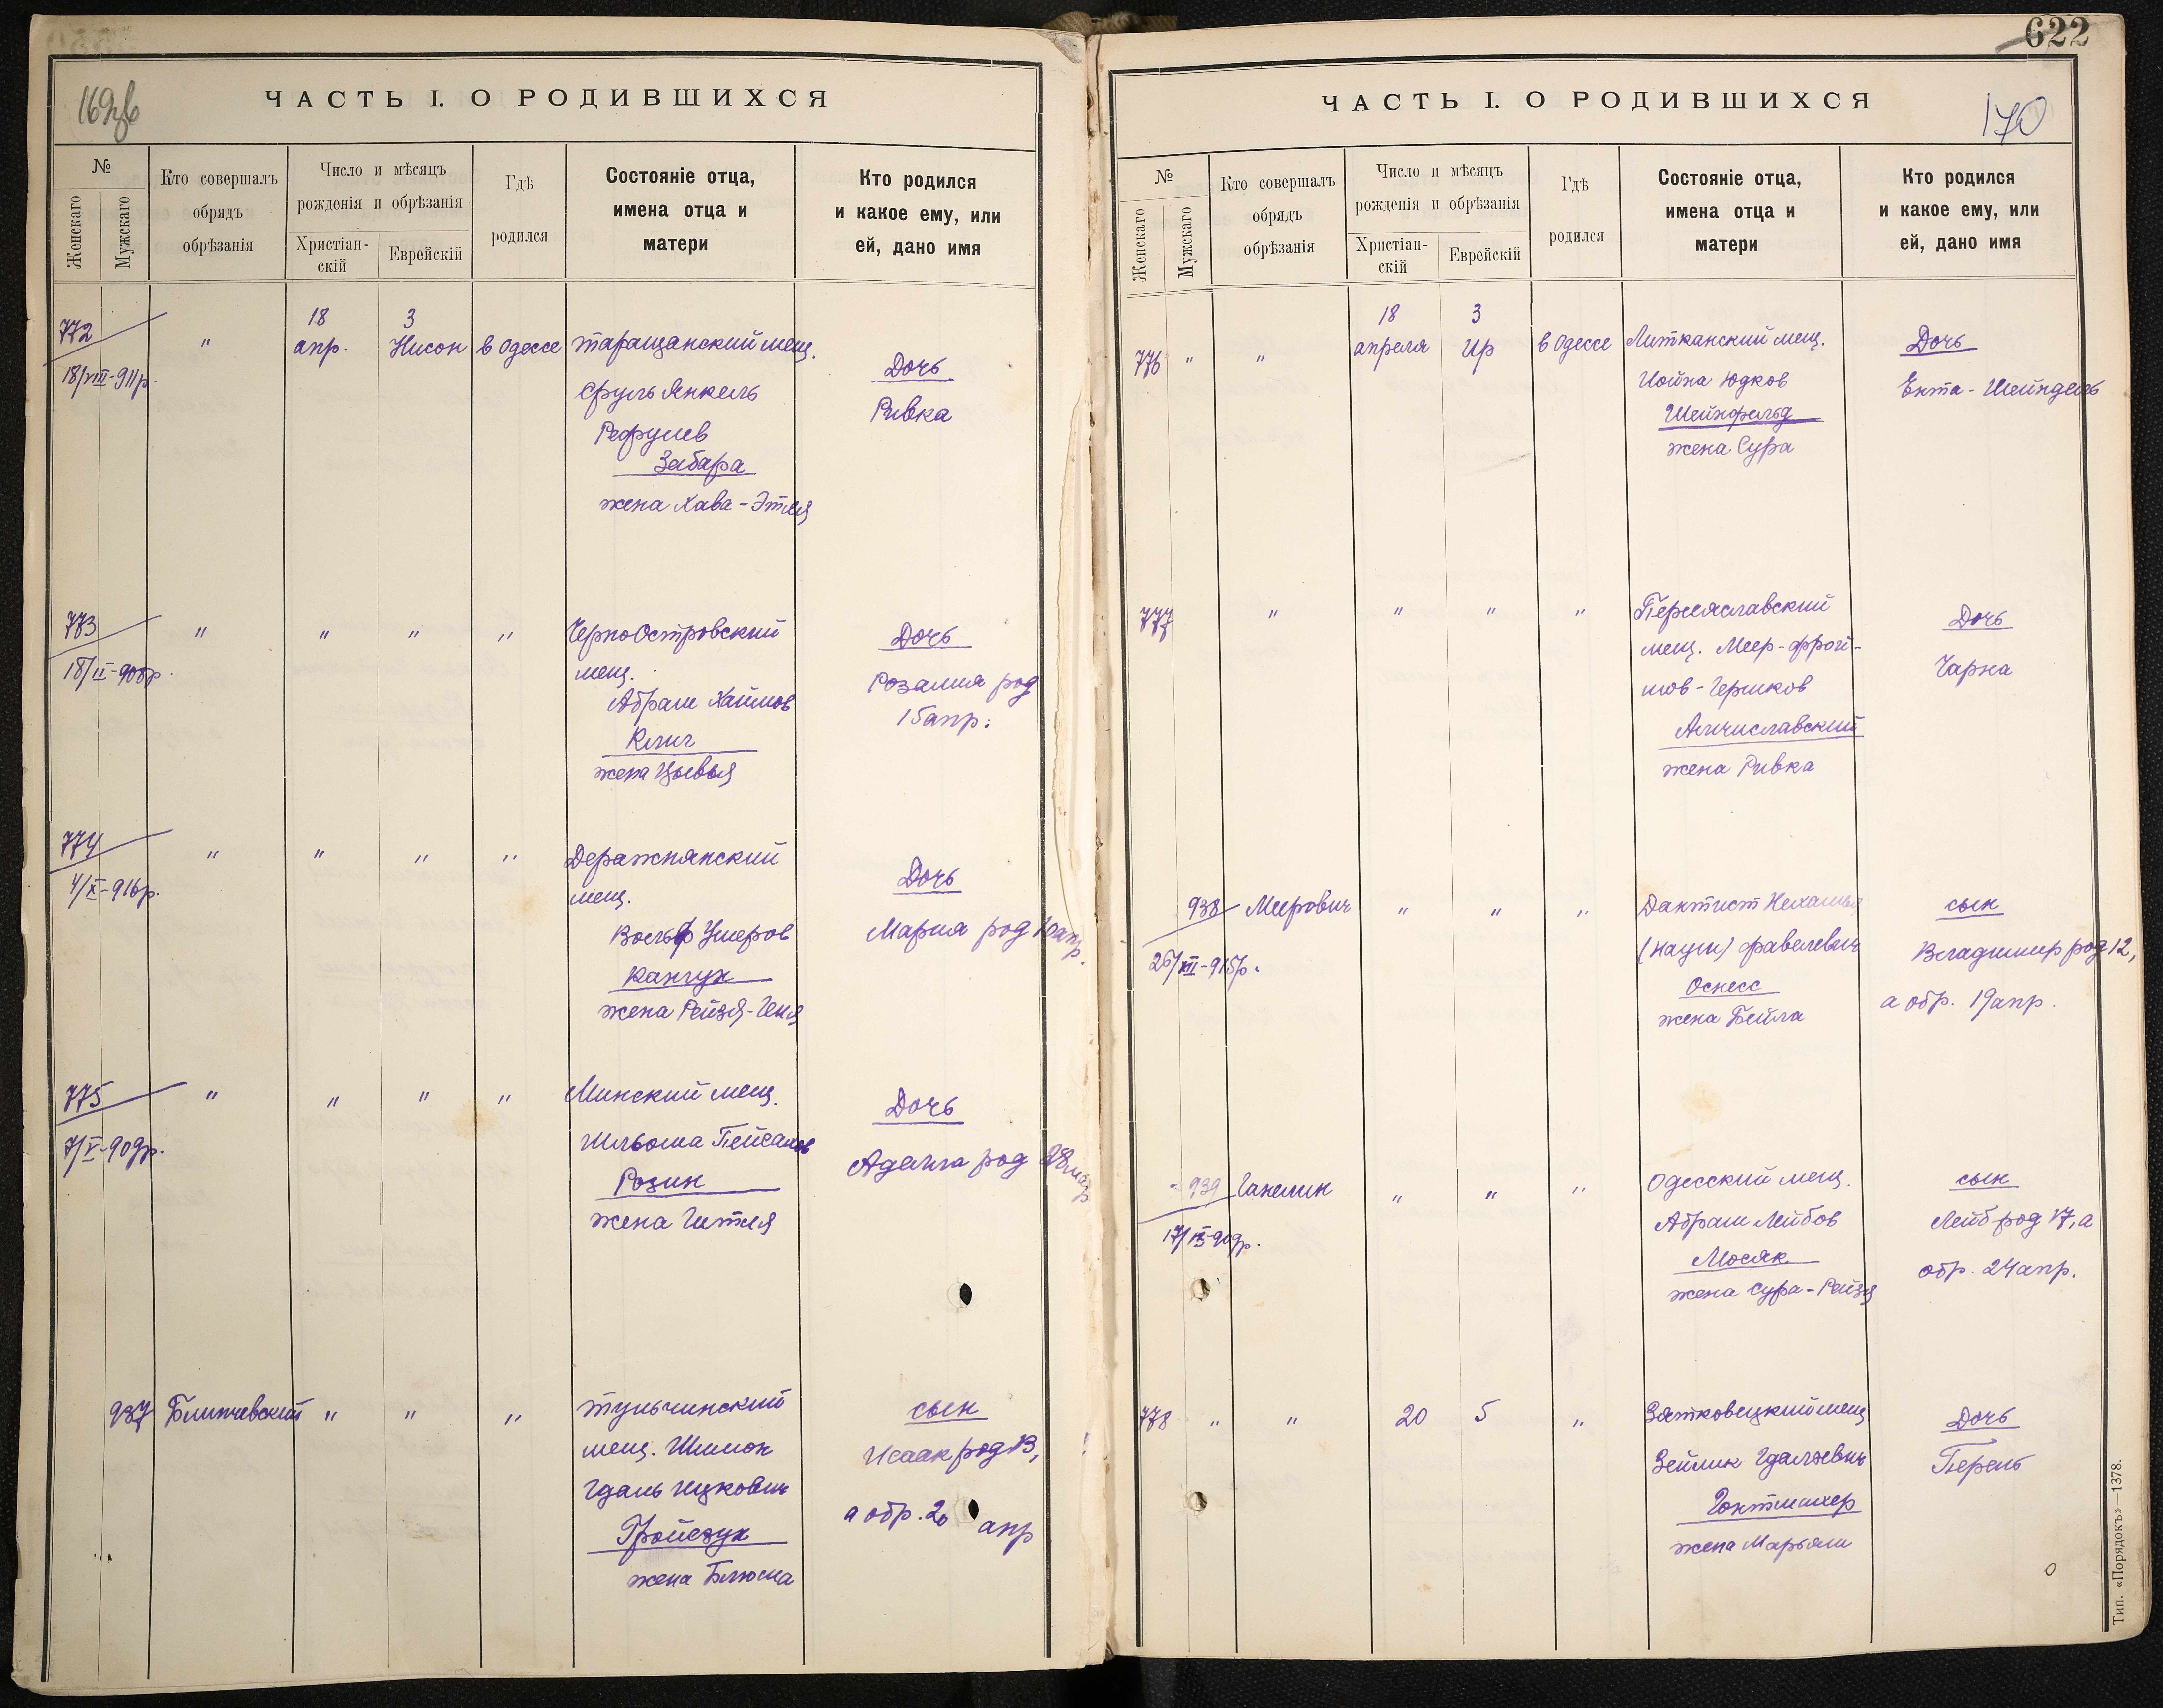 169об
ЧАСТЬ I. О РОДИВШИХСЯ
№
Женскаго
Мужскаго
Кто совершалъ
обрядъ
обрѣзанія
Число и мѣсяцъ
рожденія и обрѣзанія
Христіан-
скій
Еврейскій
Гдѣ
родился
Состояніе отца,
имена отца и
матери
Кто родился
и какое ему, или
ей, дано имя
772
18/VIII-911р.
"
18
апр.
3
Нисон
в Одессе
таращанский мещ.
Сруль Янкель
Рефулев
Забара
жена Хава-Этля
Дочь
Ривка
773
" " " "
ЧерноОстровский
мещ.
Абрам Хаимов
Клиг
жена Цывья
Дочь
Розалия род
15 апр.
774
4/X-916р.
" " " "
Деражнянский
мещ.
Вольф Умеров
Канчук
жена Рейзя-Геня
Дочь
Мария род 10 апр.
775
7/V-909р.
" " " "
Минский мещ.
Шльома Пейсахов
Розин
жена Гитля
Дочь
Аделла род 28 мар
937
Блинчевский
" " "
тульчинский
мещ. Шимон
Гдаль Ицкович
Гройсзун
жена Блюма
сын
Исаак род 13,
а обр. 20 апр
622
170
ЧАСТЬ I. О РОДИВШИХСЯ
№
Женскаго
Мужскаго
Кто совершалъ
обрядъ
обрѣзанія
Число и мѣсяцъ
рожденія и обрѣзанія
Христіан-
скій
Еврейскій
Гдѣ
родился
Состояніе отца,
имена отца и
матери
Кто родился
и какое ему, или
ей, дано имя
776
" "
18
апреля
3
Ир
в Одессе
Литканский мещ.
Иойна Юдков
Шейнфельд
жена Сура
Дочь
Ента-Шейндель
777
" " " "
Переяславский
мещ. Меер-Фрои-
мов-Гершков
жена Ривка
Дочь
Чарна
938
26/XII-915р.
Меерович
" " "
Дантист Нехамья
(Наум)
Оснесс
жена Бейла
сын
Владимир род 12,
а обр. 19 апр.
939
17/IX-909р.
Ганелин
" " "
Одесский мещ.
Абрам Лейбов
Мосяк
жена Сура-Рейзя
сын
Лейб род 17, а
обр. 24 апр.
778
" "
20
5
"
Зятковецкий мещ
Зейлик Гдалевич
Гонтмахер
жена Марьям
Дочь
Перель
Тип. «Порядокъ»—1378.